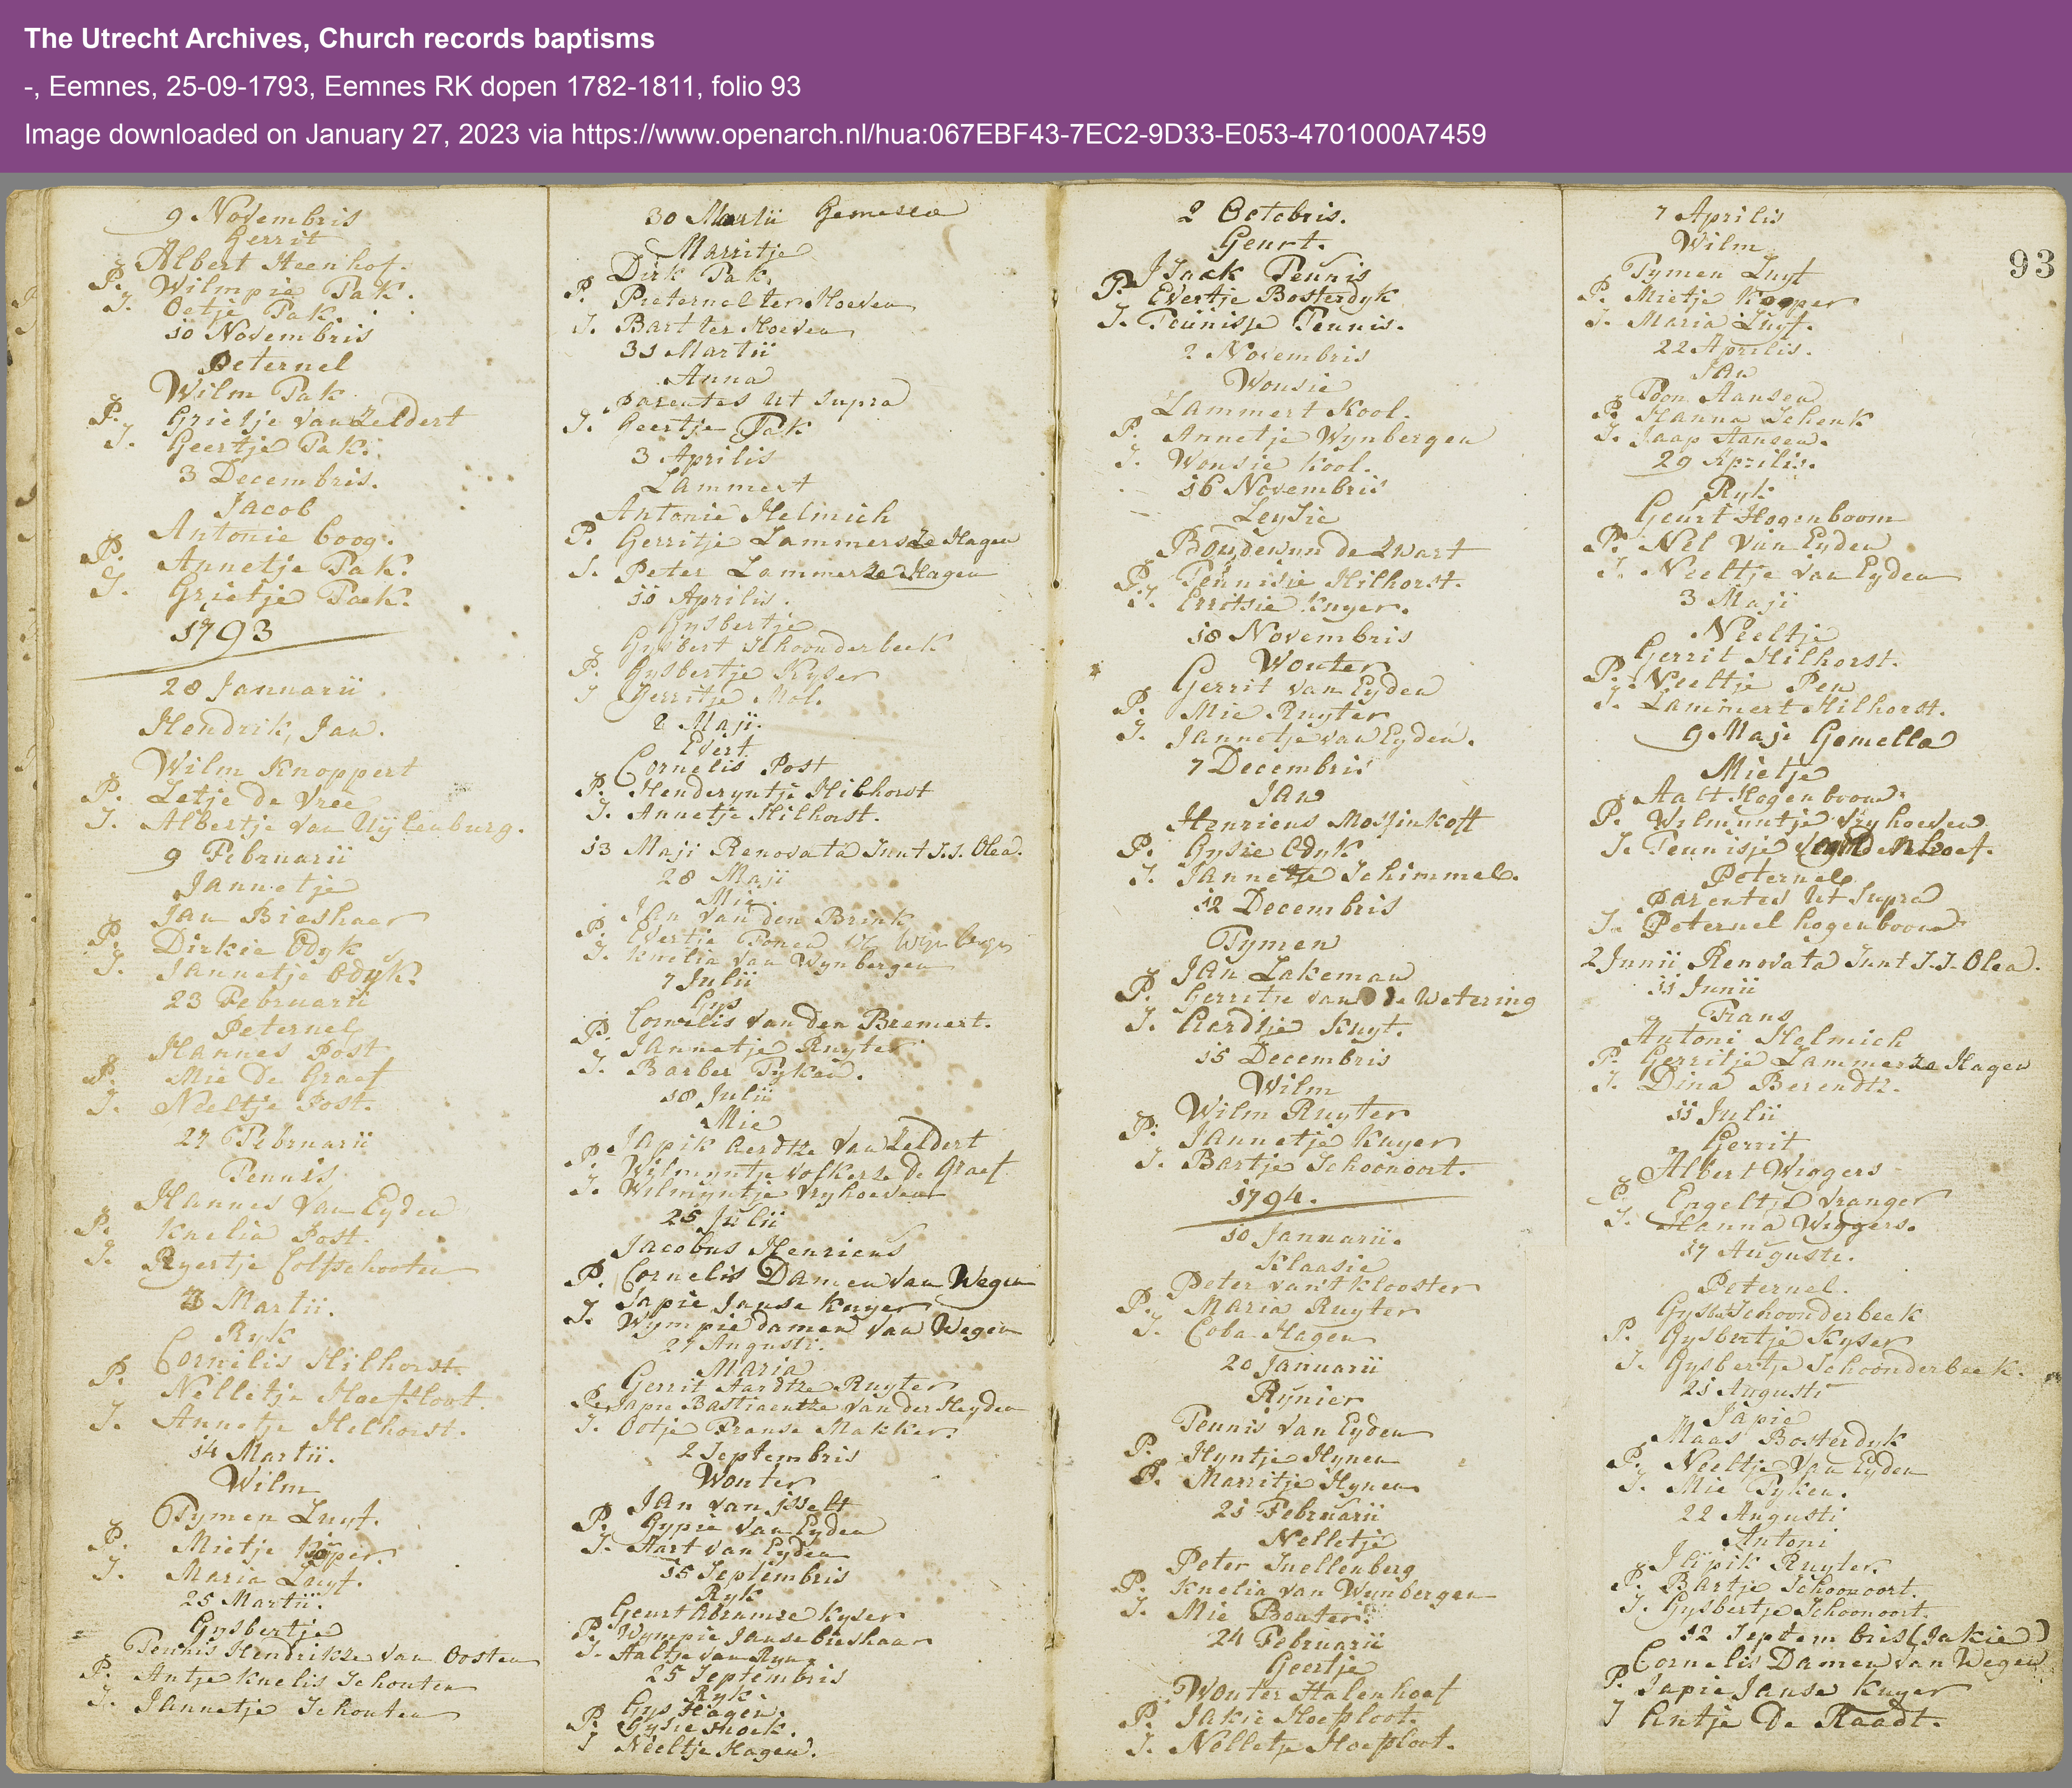 The Utrecht Archives, Church records baptisms
-, Eemnes, 25-09-1793, Eemnes RK dopen 1782-1811, folio 93
Image downloaded on January 27, 2023 via https://www.openarch.nl/hua:067EBF43-7EC2-9D33-E053-4701000A7459
9 Novembris
Gerrit
Albert Steenhof.
P. Wilmpie Pak.
S. Oetje Pak.
10 Novembris
Peternel
Wilm Pak
P. Grietje van Zeldert
S. Geertje Pak.
3 Decembris.
Jacob
Antonie Coog.
P. Annetje Pak.
S. Grietje Pack.
1793
28 Januarii
Hendrik, Jan.
Wilm Knoppert
P. Zetje de Vree
S. Albertje van Uÿlenburg.
9 Februarii
Jannetje
Jan Bieshaer
P. Dirkie Odyk
S. Jannetje Odyk.
23 Februarii
Peternel
Hannes Post
P. Mie De Graef
S. Neeltje Post.
27 Februarii
Teunis
Hannes van Eyden
P. Knelia Post.
S. Ryertje Colfschooten
Martii.
Ryk
Cornilis Hilhorst
P. Nelletje Hoefsloot.
S. Annetje Helhorst.
14 Martii.
Wilm
Tymen Luyt.
P. Mietje
S. Maria Luyt.
25 Martii.
Gysbertje
Teunis Hendrikze van Oosten
P. Antje Knelis Schouten
S. Jannetje Schouten
30 Martii
Marritje
Dirk Pak.
P. Pieternel ter Hoeven
S. Bart ter Hoeven
31 Martii
Anna
parentes ut supra
S. Geertje Pak
3 Aprilis
Lammert
Antonie Helmich
P. Gerritje Lammersze Hagen
S. Peter Lammerze Hagen
10 Aprilis.
Gysbertje
Gysbert Schoonderbeek
P. Gysbertje Kyser
S Gerritje Mol.
2 Maji.
Evert
Cornelis Post
P. Henderyntje Hilhorst
S. Annetje Hilhorst.
13 Maji Renovata Sunt S.S. Olea.
28 Maji
Mie.
Jan van den Brink
P. Evertje
S. Knelia van Wynbergen
7 Julii
Gys
Cornelis van den Bremert.
P. Jannetje Ruyter
S. Barber Tyken.
18 Julii
Mie
Japik Aerdtze van Zeldert
P. Wilmyntje Volkerze De Graef
S. Wilmyntje Vryhoeven
25 Julii
Jacobus Henricus
P. Cornelis Damen van Wegen
Japie Janse Kuyer
S. Wympie damen van Wegen
27 Augusti.
Maria
Gerrit Aardtze Ruyter
P. Japie Bastiaentze van der Heyden
S. Ootje Franse Makker
2 Septembris
Wouter
Jan van jsselt
P. Gypie van Eyden
S. Aart van Eyden
15 Septembris
Ryk
Geurt Abramze Kyser
P. Wympie Janse bieshaar
S. Aaltje van Ryn.
25 Septembris
Ryk.
Gys Hagen.
P. Gysie Hoek.
S Neeltje Hagen.
2 Octobris.
Geurt.
Jsack Teunis
P. Evertje Bosterdyk
S. Teunisje Teunis.
2 Novembris
Wousie
Lammert Kool.
P. Annetje Wynbergen
S. Wousie Kool.
16 Novembris
Leysie
Boudewyn de Zwart
P. Teunisie Hilhorst.
S. Erritsie Kuyer.
18 Novembris
Wouter
Gerrit van Eyden
P. Mie Ruyter
S. Jannetje van Eyden.
7 Decembris
Jan
Henricus Mossinkoff
P. Gysie Odyk
S. Jannetje Schimmel.
12 Decembris
Tymen
Jan Lakeman
P. Gerritje van de Wetering
S. Aerdtje Kuyt.
15 Decembris
Wilm
Wilm Ruyter
P. Jannetje Kuyer
S. Bartje Schoonoort.
1794.
10 Januarii.
Klaasie
Peter van't Klooster
P. Maria Ruyter
S. Coba Hagen
20 Januarii
Rynier
Teunis van Eyden
P. Hyntje Hynen
P. Marritje Hynen
21 Februarii
Nelletje
Peter Snellenberg
P. Knelia van Wynbergen
S. Mie Bouter.
24 Februarii
Geertje
Wouter Halenhoef
P. Jakie Hoefsloot.
S. Nelletje Hoefsloot.
7 Aprilis
Wilm
Tymen Luyt
P. Mietje Kooper
S. Maria Luyt.
22 Aprilis.
Jan
Toon Hansen
P. Hanna Schenk
S. Jaap Hansen.
29 Aprilis.
Ryk
Geurt Hogenboom
P. Nel van Eyden
S. Neeltje van Eyden
3 Maji
Neeltje
Gerrit Hilhorst.
P. Neeltje Pen
S. Lammert Hilhorst.
9 Maji Gemella
Mietje
Aalt Hogenboom
P. Wilmyntje Vryhoeven
S. Teunisje
Peternel.
parentes ut supra
S. Peternel hogenboom
2 Junii Renovata Sunt S.S. Olea.
11 Junii
Frans
Antoni Helmich
P. Gerritje Lammerze Hagen
S. Dina Berendtz.
11 Julii
Gerrit
Albert Wiggers
P. Engeltje Vranger
S. Hanna Wiggers.
17 Augusti.
Peternel.
Gysbert Schoonderbeek
P. Gysbertje Kyser
S. Gysbertje Schoonderbeek.
21 Augusti
Japie
Maas Bosterdyk
P. Neeltje van Eyden
S. Mie Tyken.
22 Augusti
Antoni
Japik Ruyter.
P. Bartje Schoonoort.
S. Gysbertje Schoonoort.
12 Septembris (Jakie)
Cornelis Damen van Wegen
P. Japie Janse Kuyer
S Antje De Raadt.
93